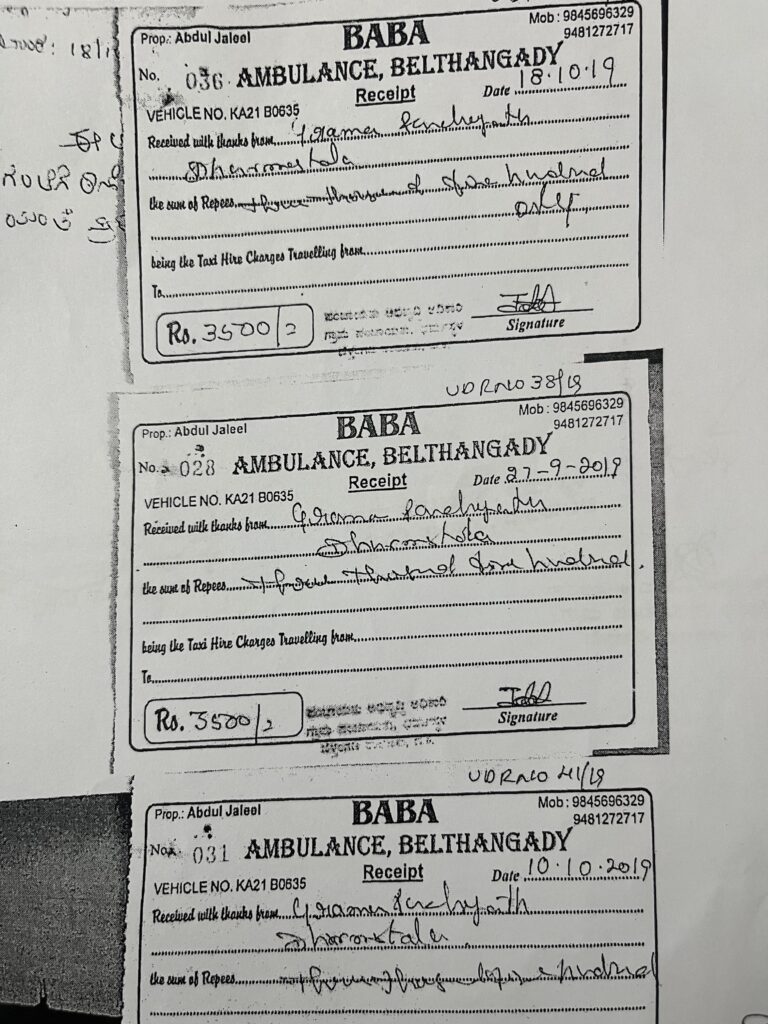 Prop.: Abdul Jaleel
Mob : 9845696329
9481272717
BABA
No. 036 AMBULANCE, BELTHANGADY
Receipt
Date 18.10.19
VEHICLE NO. KA21 B0635
Received with thanks from Grama Panchayath
Dharmstala
the sum of Repees hundred
only
being the Taxi Hire Charges Travelling from
To
Rs. 3500/2
ಪಂಚಾಯತು ಅಭಿವೃದ್ಧಿ ಅಧಿಕಾರಿ
ಗ್ರಾಮ ಪಂಚಾಯತು, ಧರ್ಮಸ್ಥಳ
Signature
UDR NO 38/19
Prop.: Abdul Jaleel
Mob : 9845696329
9481272717
BABA
No. 028 AMBULANCE, BELTHANGADY
Receipt
Date 27-9-2019
VEHICLE NO. KA21 B0635
Received with thanks from Grama Panchayath
Dharmstala
the sum of Repees hundred
being the Taxi Hire Charges Travelling from
To
Rs. 3500/2
ಪಂಚಾಯತು ಅಭಿವೃದ್ಧಿ ಅಧಿಕಾರಿ
ಗ್ರಾಮ ಪಂಚಾಯತು, ಧರ್ಮಸ್ಥಳ
Signature
UDR NO 41/19
Prop.: Abdul Jaleel
Mob : 9845696329
9481272717
BABA
No. 031 AMBULANCE, BELTHANGADY
Receipt
Date 10.10.2019
VEHICLE NO. KA21 B0635
Received with thanks from Grama Panchayath
Dharmstala
the sum of Repees hundred